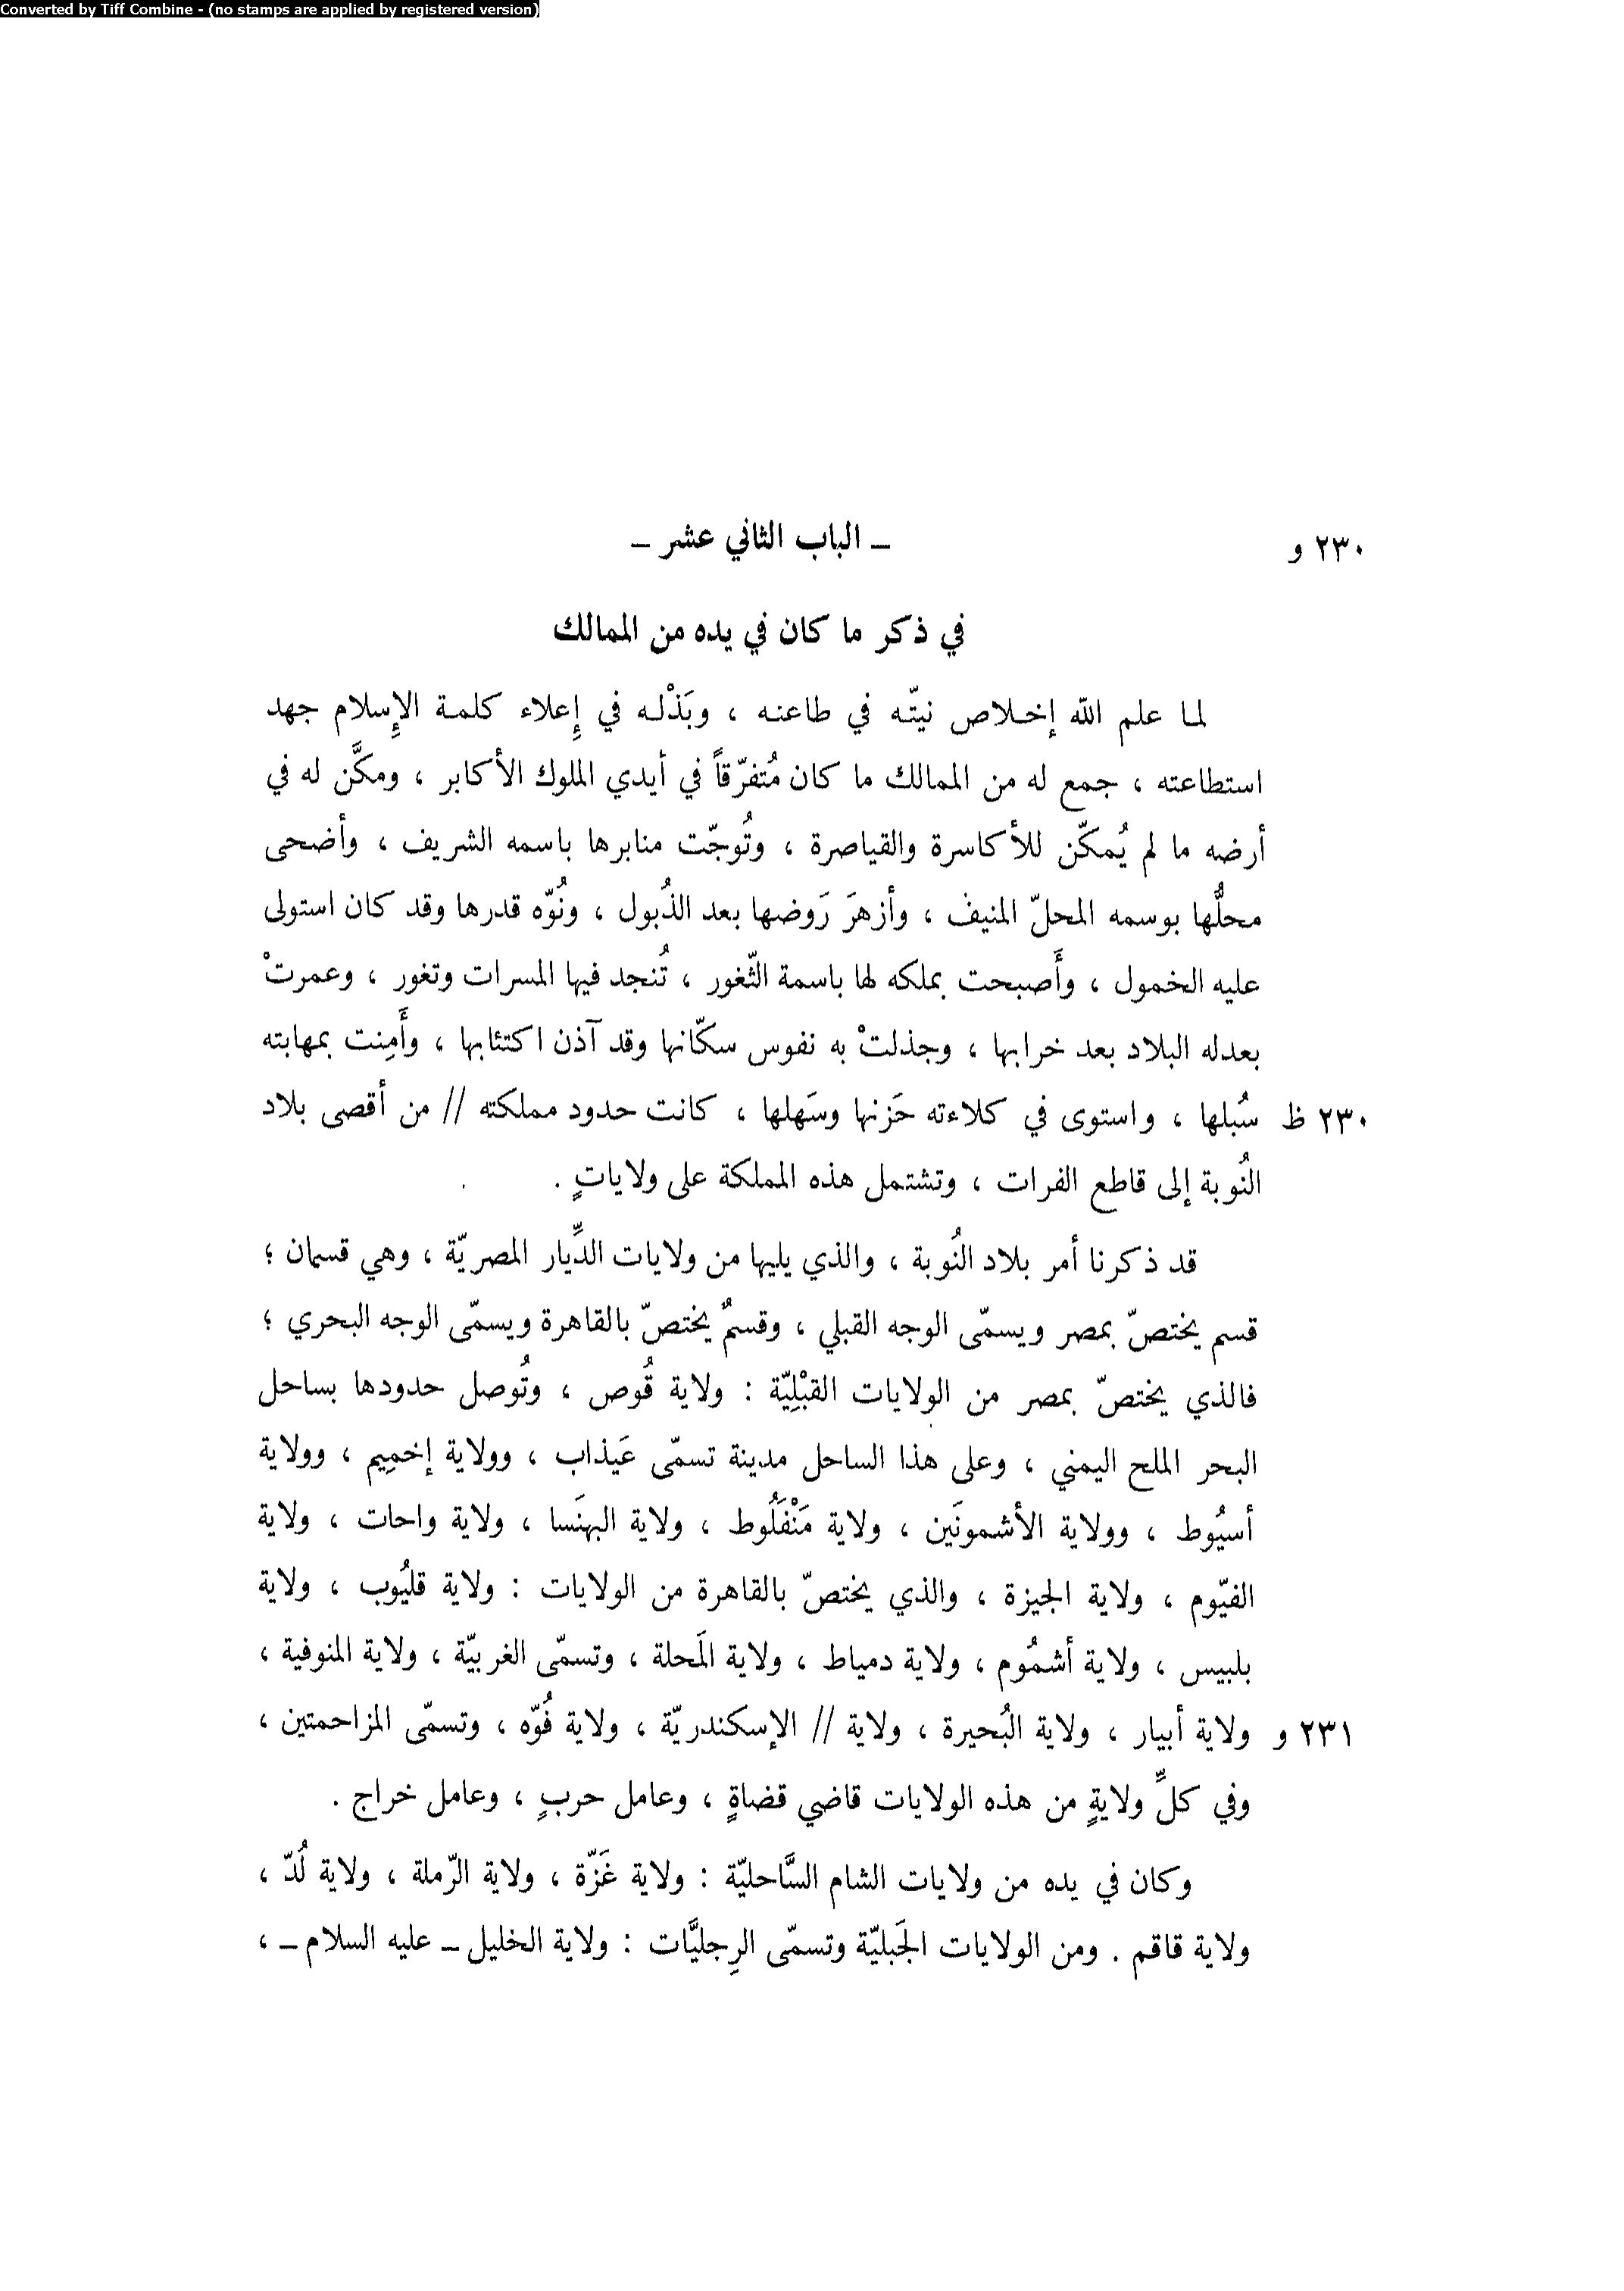 Converted by Tiff Combine - (no stamps are applied by registered version)
٢٣٠ و
ـ الباب الثاني عشر ـ
في ذكر ما كان في يده من الممالك
لما علم الله إخلاص نيّته في طاعنه ، وبَذْله في إعلاء كلمة الإسلام جهد
استطاعته ، جمع له من الممالك ما كان مُتفرّقاً في أيدي الملوك الأكابر ، ومكَّن له في
أرضه ما لم يُمكّن للأكاسرة والقياصرة ، وتُوجّت منابرها باسمه الشريف ، وأضحى
محلُّها بوسمه المحلّ المنيف ، وأزهرَ رَوضها بعد الذُبول ، ونُوّه قدرها وقد كان استولى
عليه الخمول ، وأَصبحت بملكه لها باسمة الثّغور ، تُنجد فيها المسرات وتغور ، وعمرتْ
بعدله البلاد بعد خرابها ، وجذلتْ به نفوس سكّانها وقد آذن اكتئابها ، وأَمِنت بمهابته
٢٣٠ ظ سُبلها ، واستوى في كلاءته حَزنها وسَهلها ، كانت حدود مملكته // من أقصى بلاد
النُوبة إلى قاطع الفرات ، وتشتمل هذه المملكة على ولاياتٍ .
قد ذكرنا أمر بلاد النُوبة ، والذي يليها من ولايات الدِّيار المصريّة ، وهي قسمان ؛
قسم يختصّ بمصر ويسمّى الوجه القبلي ، وقسمٌ يختصّ بالقاهرة ويسمّى الوجه البحري ؛
فالذي يختصّ بمصر من الولايات القبْلِيّة : ولاية قُوص ، وتُوصل حدودها بساحل
البحر الملح اليمني ، وعلى هذا الساحل مدينة تسمّى عَيذاب ، وولاية إخمِيم ، وولاية
أسيُوط ، وولاية الأشمونَين ، ولاية مَنْفَلُوط ، ولاية البهنَسا ، ولاية واحات ، ولاية
الفيّوم ، ولاية الجيزة ، والذي يختصّ بالقاهرة من الولايات : ولاية قليُوب ، ولاية
بلبيس ، ولاية أشمُوم ، ولاية دمياط ، ولاية المَحلة ، وتسمّى الغربيّة ، ولاية المنوفية ،
٢٣١ و ولاية أبيار ، ولاية البُحيرة ، ولاية // الإسكندريّة ، ولاية فُوّه ، وتسمّى المزاحمتين ،
وفي كلِّ ولايةٍ من هذه الولايات قاضي قضاةٍ ، وعامل حربٍ ، وعامل خراج .
وكان في يده من ولايات الشام السَّاحليّة : ولاية غَزّة ، ولاية الرّملة ، ولاية لُدّ ،
ولاية قاقم . ومن الولايات الجَبليّة وتسمّى الرِجليَّات : ولاية الخليل ـ عليه السلام ـ ،